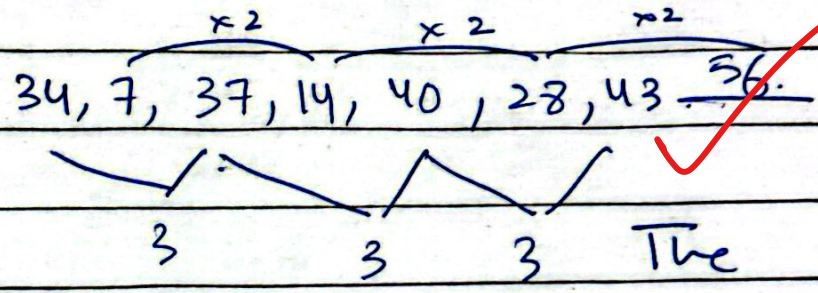 ×2 ×2 ×2
34, 7, 37, 14, 40, 28, 43 56.
3 3 3 The